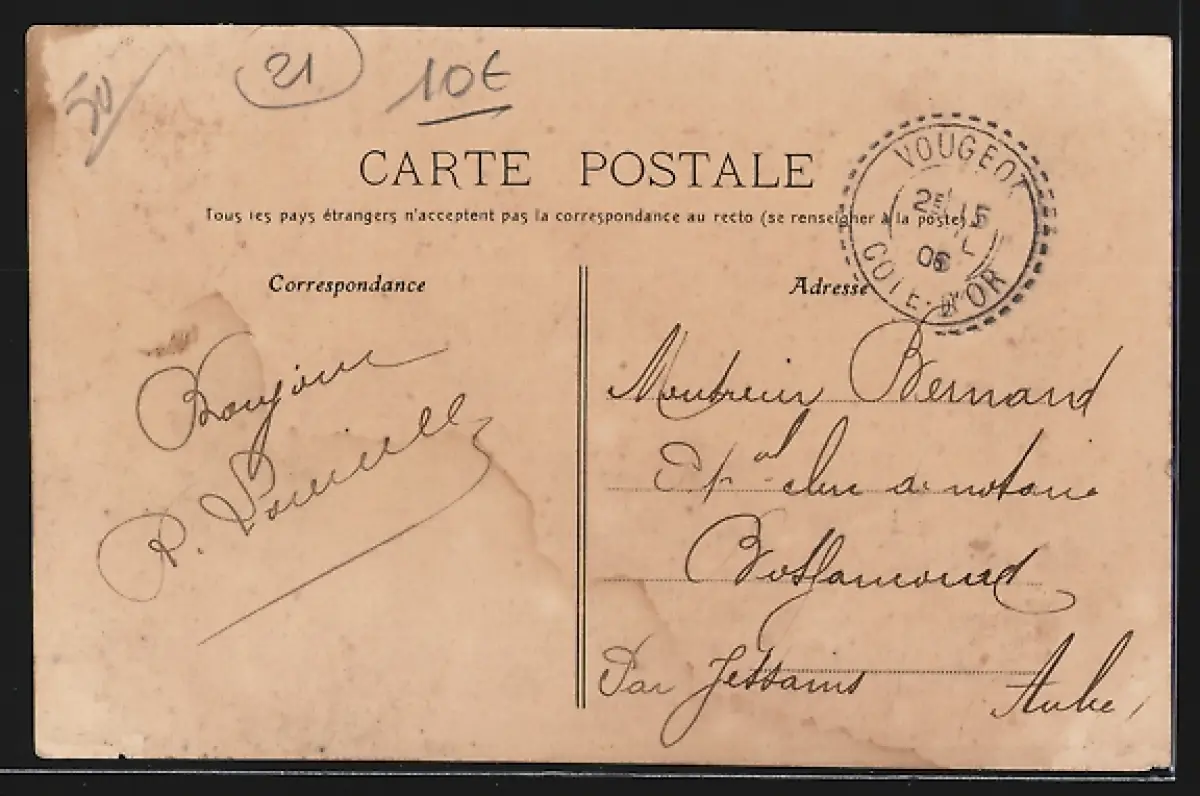 50
21
10€
CARTE POSTALE
Tous les pays étrangers n'acceptent pas la correspondance au recto (se renseigner à la poste)
VOUGEOT
2E 15
06
COTE-D'OR
Correspondance
Adresse
Bonjour
R.
Monsieur Bernard
Epal clerc de notaire
Bossancourt
Par Jessains
Aube,